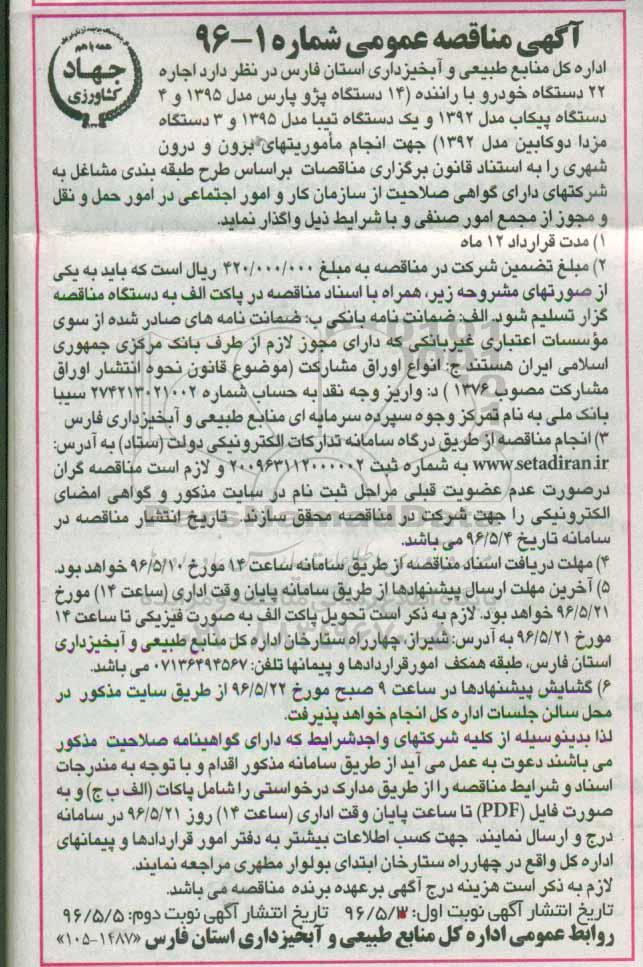 آگهی مناقصه عمومی شماره ۱-۹۶
همه با هم
جهاد
کشاورزی
اداره کل منابع طبیعی و آبخیزداری استان فارس در نظر دارد اجاره
۲۲ دستگاه خودرو با راننده (۱۴ دستگاه پژو پارس مدل ۱۳۹۵ و ۴
دستگاه پیکاب مدل ۱۳۹۲ و یک دستگاه تیبا مدل ۱۳۹۵ و ۳ دستگاه
مزدا دوکابین مدل ۱۳۹۲) جهت انجام مأموریتهای برون و درون
شهری را به استناد قانون برگزاری مناقصات براساس طرح طبقه بندی مشاغل به
شرکتهای دارای گواهی صلاحیت از سازمان کار و امور اجتماعی در امور حمل و نقل
و مجوز از مجمع امور صنفی و با شرایط ذیل واگذار نماید.
۱) مدت قرارداد ۱۲ ماه
۲) مبلغ تضمین شرکت در مناقصه به مبلغ ۴۲۰/۰۰۰/۰۰۰ ریال است که باید به یکی
از صورتهای مشروحه زیر، همراه با اسناد مناقصه در پاکت الف به دستگاه مناقصه
گزار تسلیم شود. الف: ضمانت نامه بانکی ب: ضمانت نامه های صادر شده از سوی
مؤسسات اعتباری غیربانکی که دارای مجوز لازم از طرف بانک مرکزی جمهوری
اسلامی ایران هستند ج: انواع اوراق مشارکت (موضوع قانون نحوه انتشار اوراق
مشارکت مصوب ۱۳۷۶ ) د: واریز وجه نقد به حساب شماره ۲۷۴۲۱۳۰۲۱۰۰۲ سیبا
بانک ملی به نام تمرکز وجوه سپرده سرمایه ای منابع طبیعی و آبخیزداری فارس
۳) انجام مناقصه از طریق درگاه سامانه تدارکات الکترونیکی دولت (ستاد) به آدرس:
www.setadiran.ir به شماره ثبت ۲۰۰۹۶۳۱۱۲۰۰۰۰۰۲ و لازم است مناقصه گران
درصورت عدم عضویت قبلی مراحل ثبت نام در سایت مذکور و گواهی امضای
الکترونیکی را جهت شرکت در مناقصه محقق سازند. تاریخ انتشار مناقصه در
سامانه تاریخ ۹۶/۵/۴ می باشد.
۴) مهلت دریافت اسناد مناقصه از طریق سامانه ساعت ۱۴ مورخ ۹۶/۵/۱۰ خواهد بود.
۵) آخرین مهلت ارسال پیشنهادها از طریق سامانه پایان وقت اداری (ساعت ۱۴) مورخ
۹۶/۵/۲۱ خواهد بود. لازم به ذکر است تحویل پاکت الف به صورت فیزیکی تا ساعت ۱۴
مورخ ۹۶/۵/۲۱ به آدرس: شیراز، چهارراه ستارخان اداره کل منابع طبیعی و آبخیزداری
استان فارس، طبقه همکف امور قراردادها و پیمانها تلفن: ۰۷۱۳۶۴۹۴۵۶۷ می باشد.
۶) گشایش پیشنهادها در ساعت ۹ صبح مورخ ۹۶/۵/۲۲ از طریق سایت مذکور در
محل سالن جلسات اداره کل انجام خواهد پذیرفت.
لذا بدینوسیله از کلیه شرکتهای واجدشرایط که دارای گواهینامه صلاحیت مذکور
می باشند دعوت به عمل می آید از طریق سامانه مذکور اقدام و با توجه به مندرجات
اسناد و شرایط مناقصه را از طریق مدارک درخواستی را شامل پاکات (الف ب ج) و به
صورت فایل (PDF) تا ساعت پایان وقت اداری (ساعت ۱۴) روز ۹۶/۵/۲۱ در سامانه
درج و ارسال نمایند. جهت کسب اطلاعات بیشتر به دفتر امور قراردادها و پیمانهای
اداره کل واقع در چهارراه ستارخان ابتدای بولوار مطهری مراجعه نمایند.
لازم به ذکر است هزینه درج آگهی برعهده برنده مناقصه می باشد.
تاریخ انتشار آگهی نوبت اول: ۹۶/۵/۳ تاریخ انتشار آگهی نوبت دوم: ۹۶/۵/۵
روابط عمومی اداره کل منابع طبیعی و آبخیزداری استان فارس «۱۰۵-۱۴۸۷»